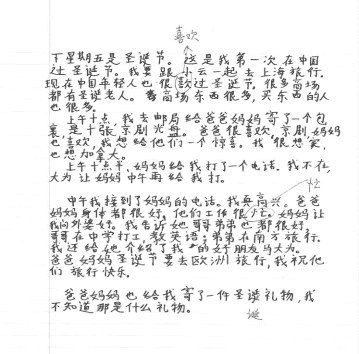 喜欢
下星期五是圣诞节。这是我第一次在中国
过圣诞节。我要跟小云一起去上海旅行。
现在中国年轻人也很欢过圣诞节，很多商场
都有圣诞老人。商场东西很多，买东西的人
也很多。
上午十点，我去邮局给爸爸妈妈寄了一个包
裹，是十张京剧光盘。爸爸很喜欢京剧，妈妈
也喜欢，我想给他们一个惊喜。我很想家，
也想加拿大。
上午十点半，妈妈给我打了一个电话。我不在，
大为让妈妈中午再给我打。
忙
中午我接到了妈妈的电话。我真高兴。爸爸
妈妈身体都很好，他们工作很忙。妈妈让
我问外婆好。我告诉她哥哥弟弟也都很好。
哥哥在中学打工，教英语；弟弟在南方旅行。
我还给她介绍了我的好朋友马大为。
爸爸妈妈圣诞节要去欧洲旅行，我祝他
们旅行快乐。
爸爸妈妈也给我寄了一件圣诞礼物，我
不知道那是什么礼物。
诞